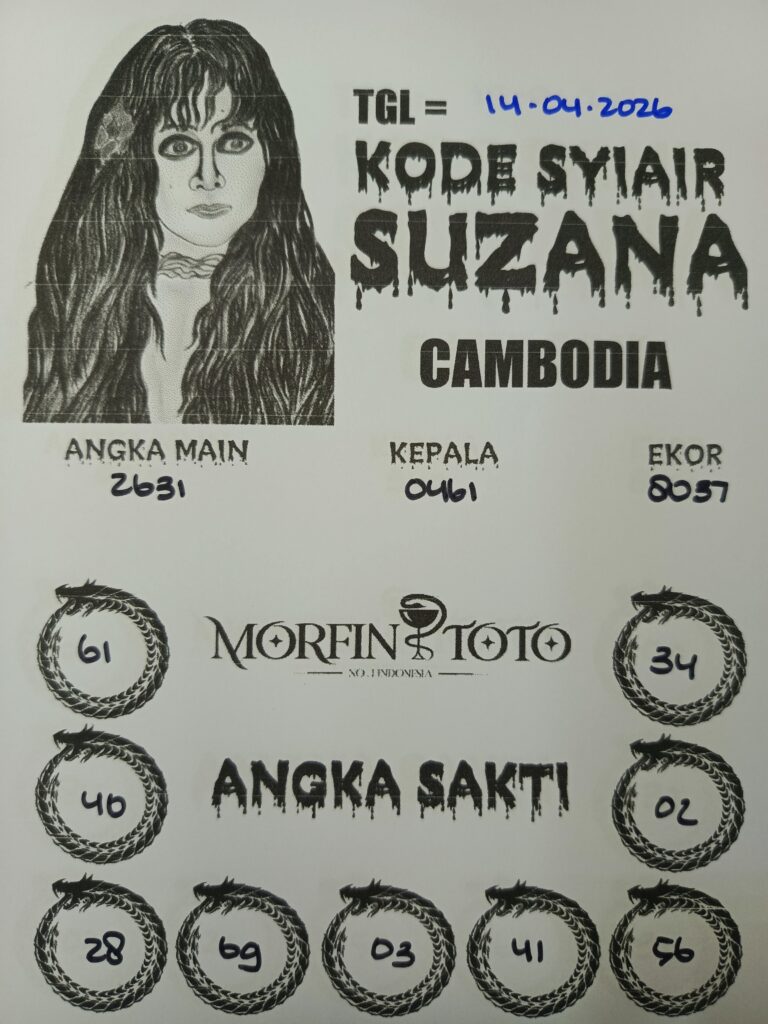 TGL = 14.04.2026
KODE SYIAIR
SUZANA
CAMBODIA
ANGKA MAIN KEPALA EKOR
2631 0461 8037
61 MORFIN TOTO 34
NO.1 INDONESIA
40 ANGKA SAKTI 02
28 69 03 41 56